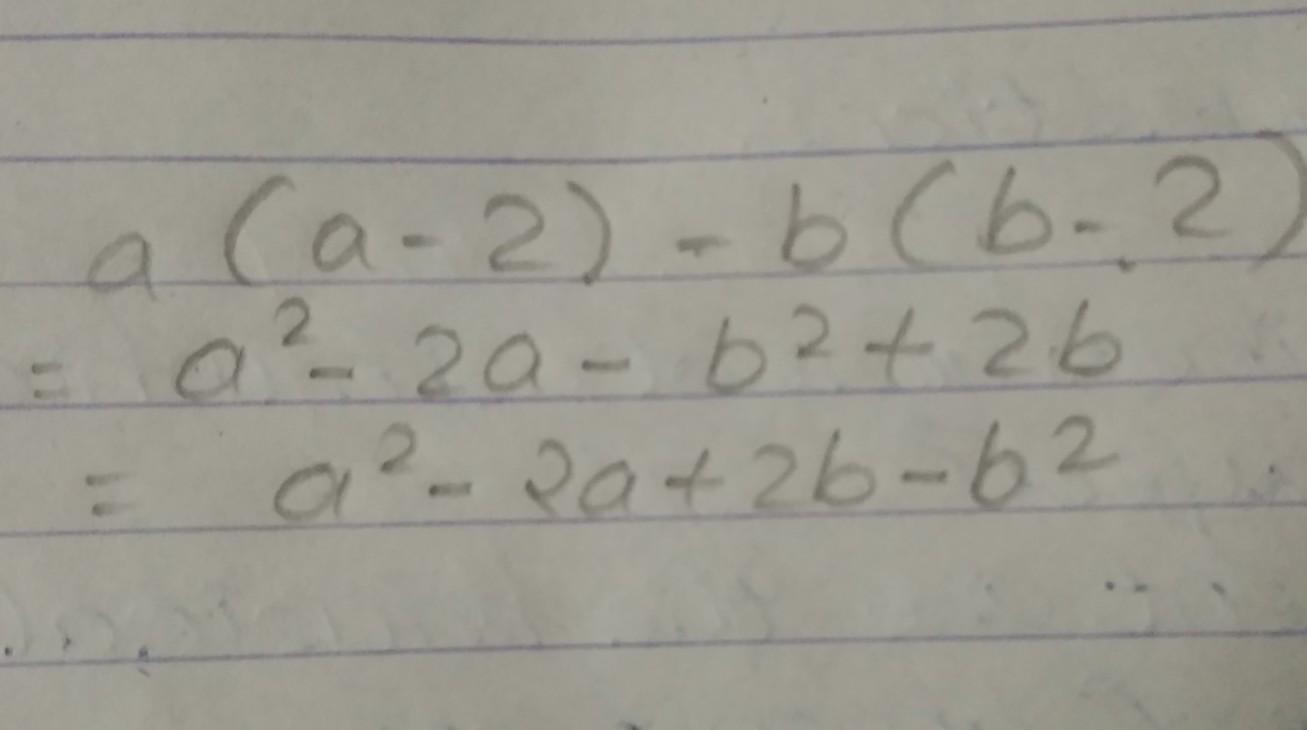 a (a - 2) - b (b - 2)
= a² - 2a - b² + 2b
= a² - 2a + 2b - b²